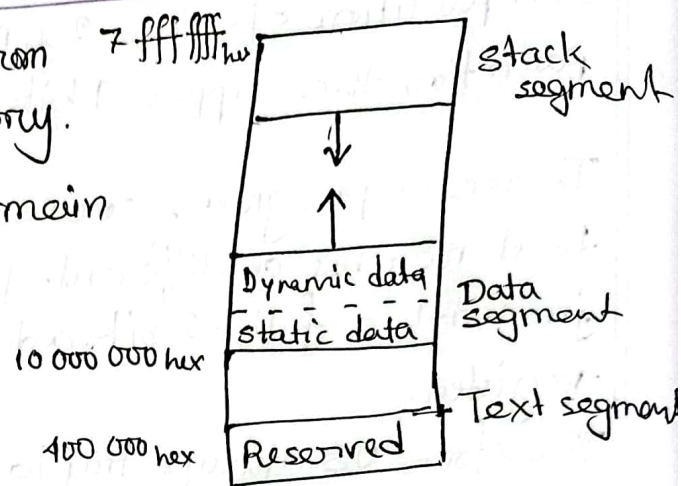 7 fff fff hex
stack
segment
main
Dynamic data
static data
Data
segment
10 000 000 hex
Text segment
400 000 hex
Reserved